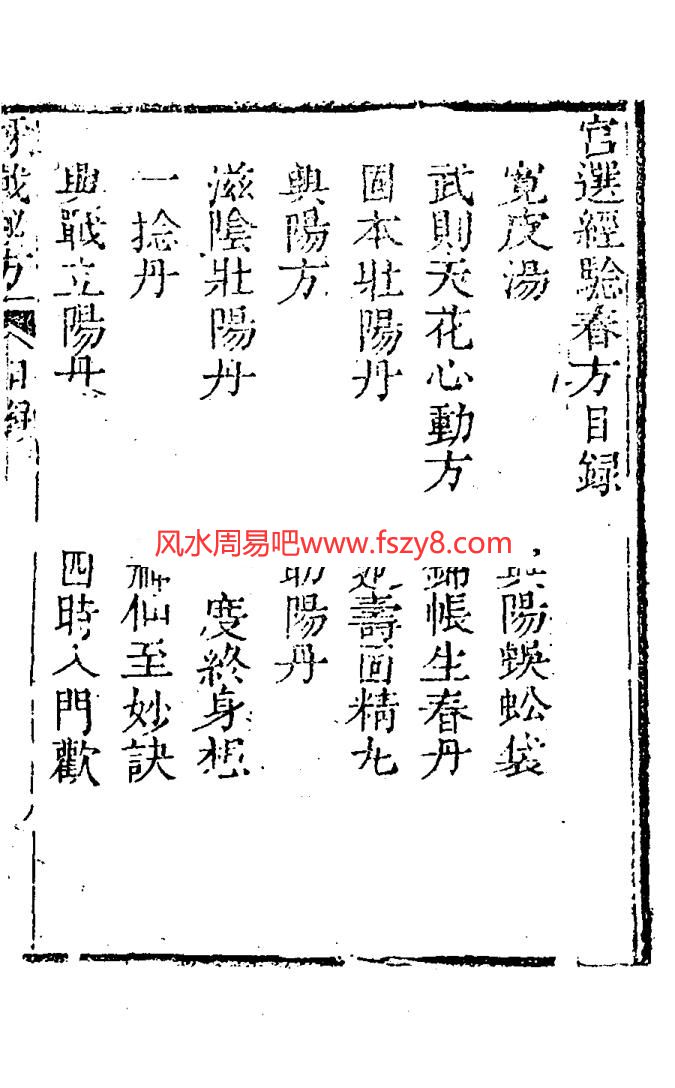 宫選經驗春方目録
寛皮湯
陽蜈蚣袋
武則天花心動方
錦帳生春丹
固本壯陽丹
壽固精丸
興陽方
助陽丹
滋陰壯陽丹
度終身想
一捻丹
神仙至妙訣
興戰立陽丹
四時入門歡
方
目録
风水周易吧www.fszy8.com